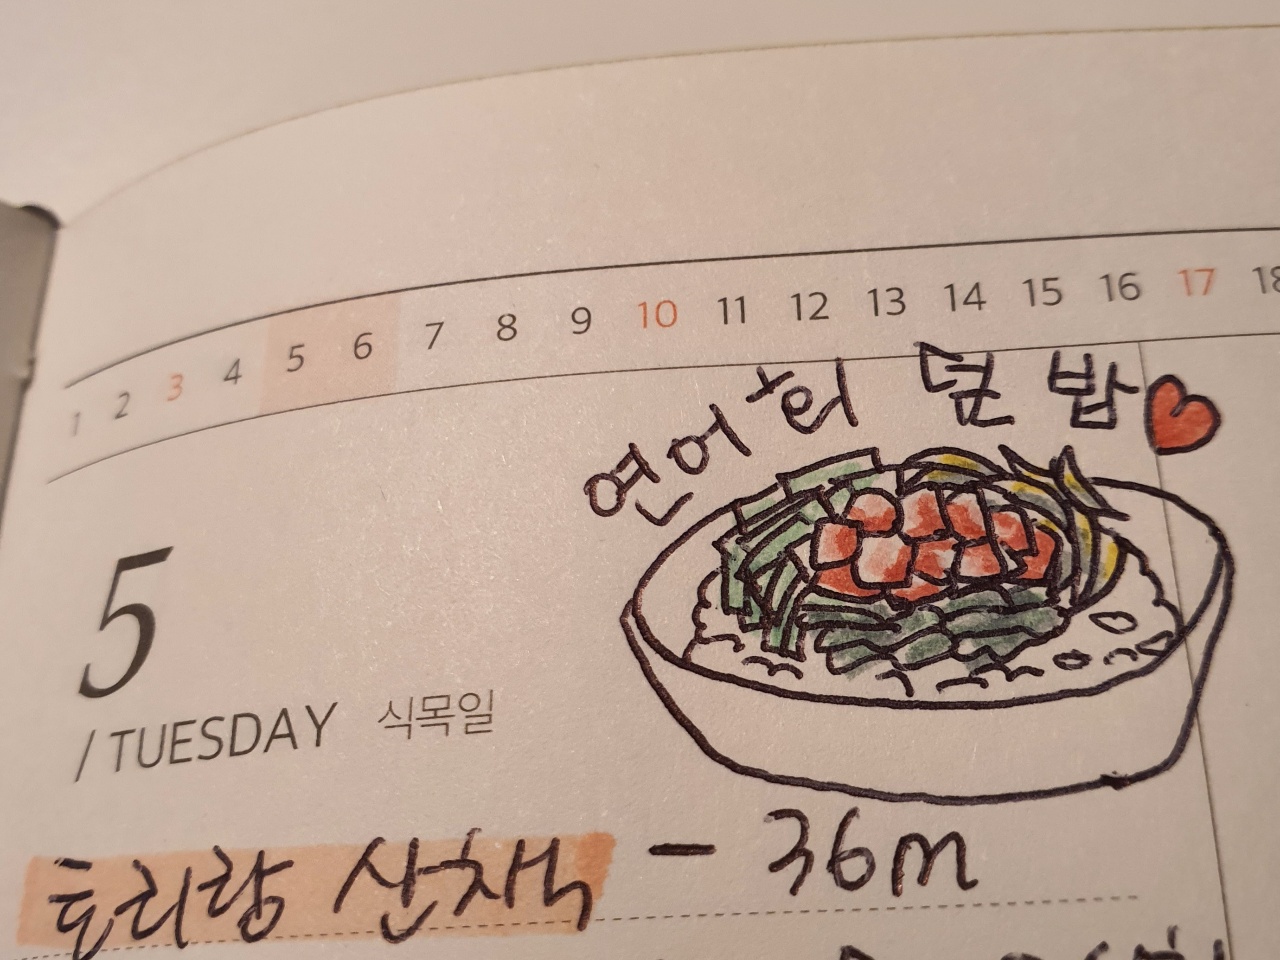 1 2 3 4 5 6 7 8 9 10 11 12 13 14 15 16 17 18
연어회 덮밥
5
/ TUESDAY 식목일
토리랑 산책 - 36m